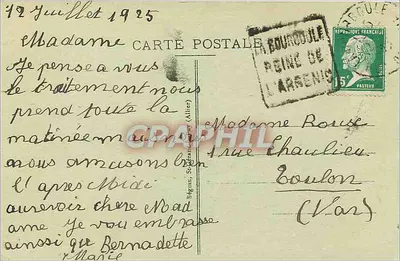 12 Juillet 1925
Madame
Je pense a vous
le traitement nous
prend toute la
matinée mais
nous amusons bien
l'apres Midi
aurevoir chere Mad
ame Je vous embrasse
ainsi que Bernadette
Marie
CARTE POSTALE
LA BOURBOULE
REINE DE
L'ARSENIC
REPUBLIQUE FRANÇAISE
15c
POSTES
PASTEUR
(Allier)
Madame Roux
1 rue Chaulieu
Toulon
(Var)
CRAPHIL